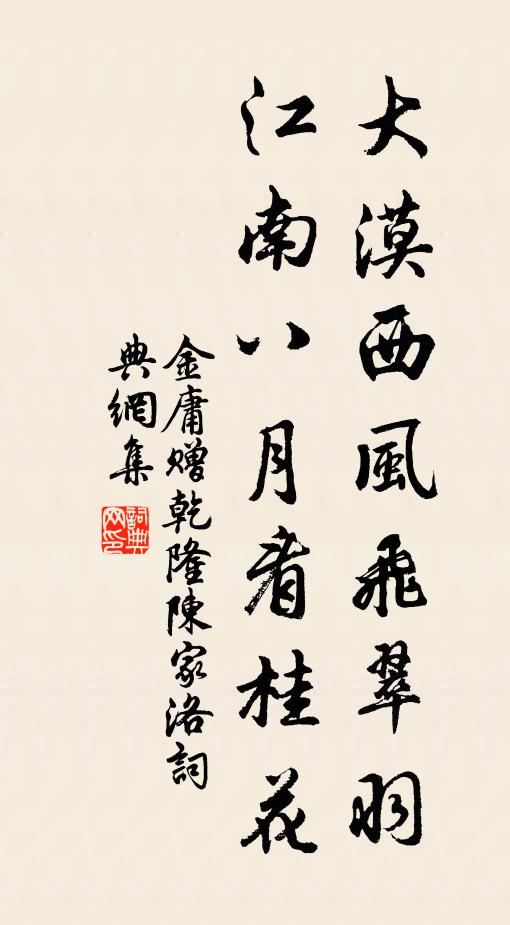 大漠西風飛翠羽
江南八月看桂花
金庸赠乾隆陳家洛詞
典網集
詞典網印